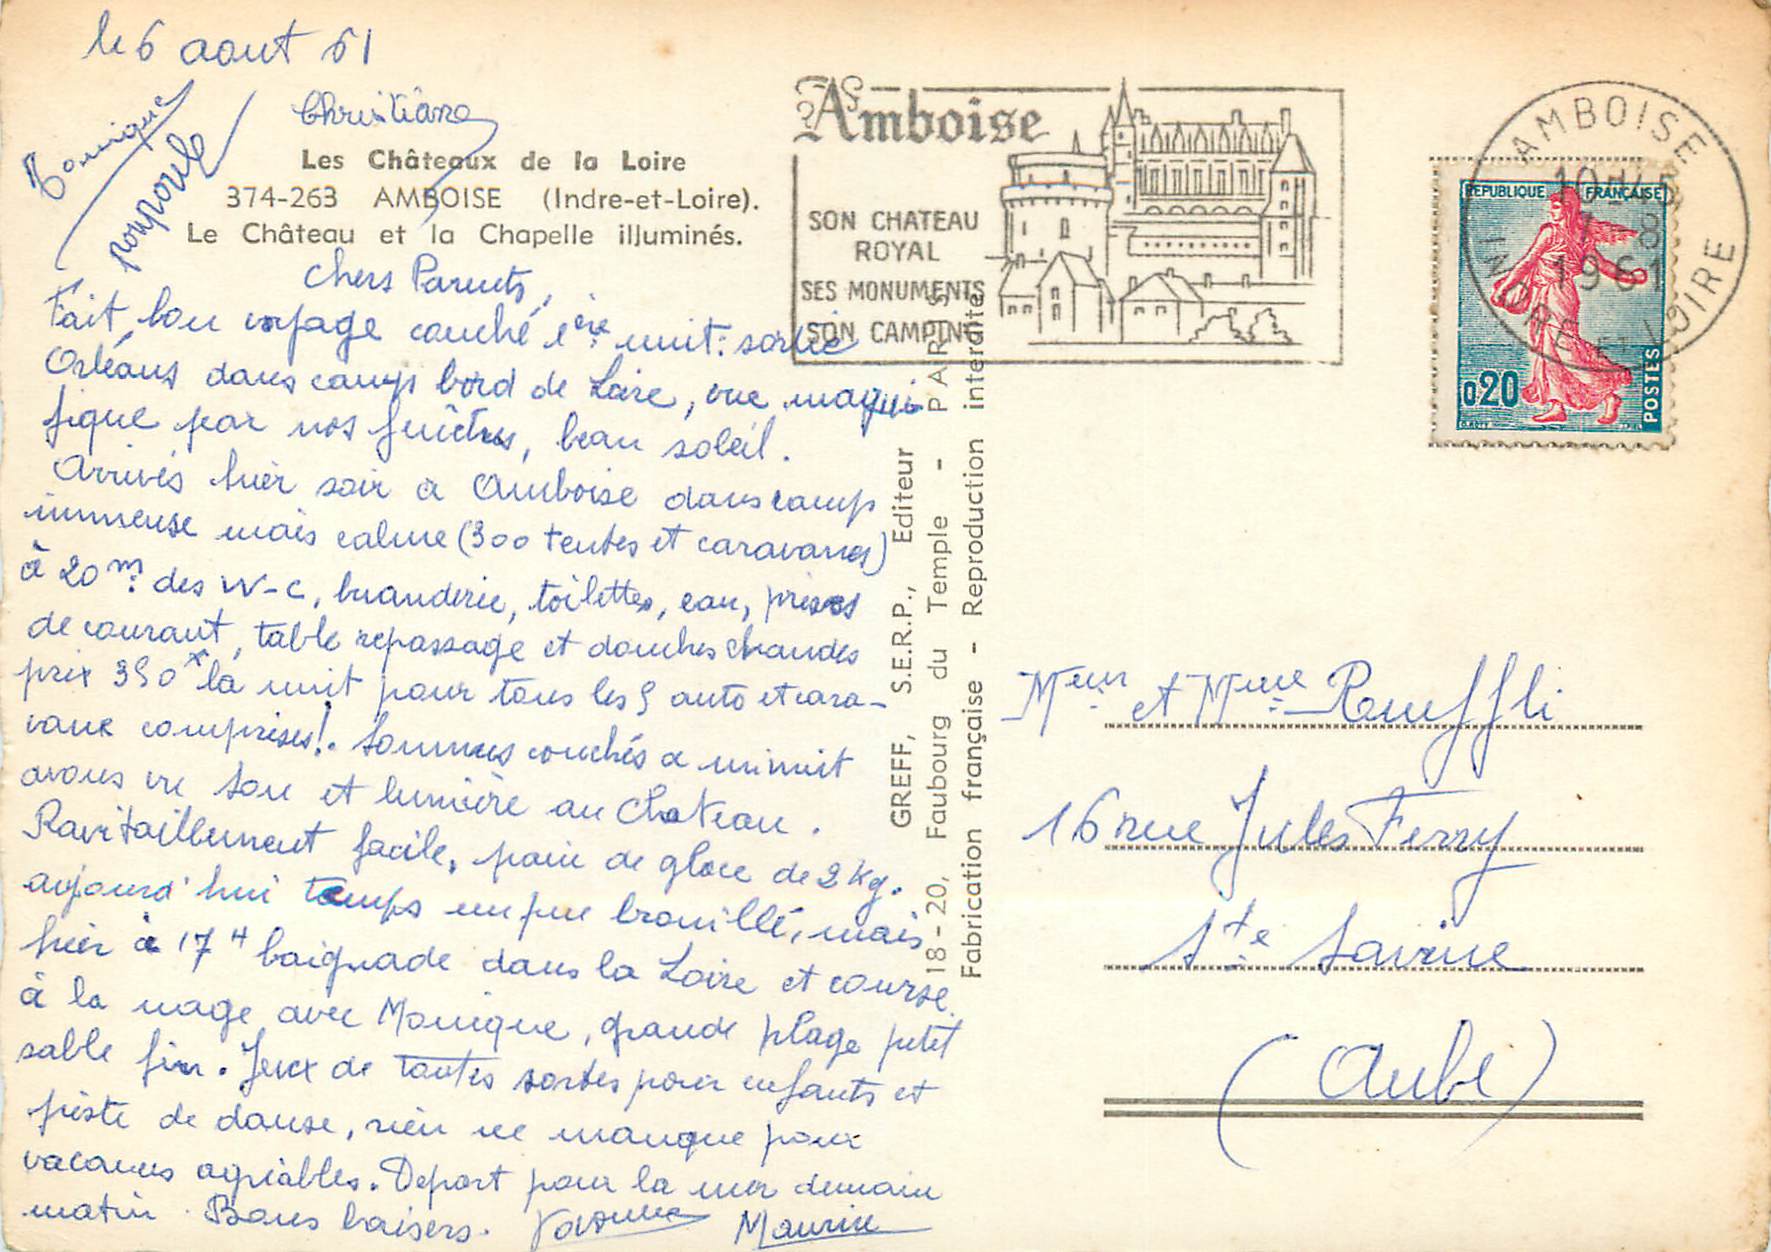 le 6 aout 61
Monique
poupoule
Christiane
Les Châteaux de la Loire
374-263 AMBOISE (Indre-et-Loire).
Le Château et la Chapelle illuminés.
Chers Parents,
Fait bon voyage couché 1ère nuit: sortie
Orléans dans camp bord de Loire, vue magni
fique par nos fenêtres, beau soleil.
Arrivés hier soir a Amboise dans camp
immense mais calme (300 tentes et caravanes)
à 20 m. des W-C, buanderie, toilettes, eau, prises
de courant, table repassage et douches chaudes
prix 350 la nuit pour tous les 5 auto et cara-
vane comprises!. Sommes couchés a minuit
avons vu son et lumière au Chateau.
Ravitaillement facile, pain de glace de 2 kg.
aujourd'hui temps un peu brouillé, mais
hier à 17 H baignade dans la Loire et course
à la nage avec Monique, grande plage petit
sable fin. Jeux de toutes sortes pour enfants et
piste de danse, rien ne manque pour
vacances agréables. Depart pour la mer demain
matin. Bons baisers. Maurice
GREFF, S.E.R.P., Editeur
18-20, Faubourg du Temple - PARIS
Fabrication française - Reproduction interdite
Amboise
SON CHATEAU
ROYAL
SES MONUMENTS
SON CAMPING
AMBOISE
10H45
7-8
1961
INDRE ET LOIRE
REPUBLIQUE FRANÇAISE
0,20
POSTES
Meur et Mme Rueffli
16 rue Jules Ferry
Ste Savine
(Aube)